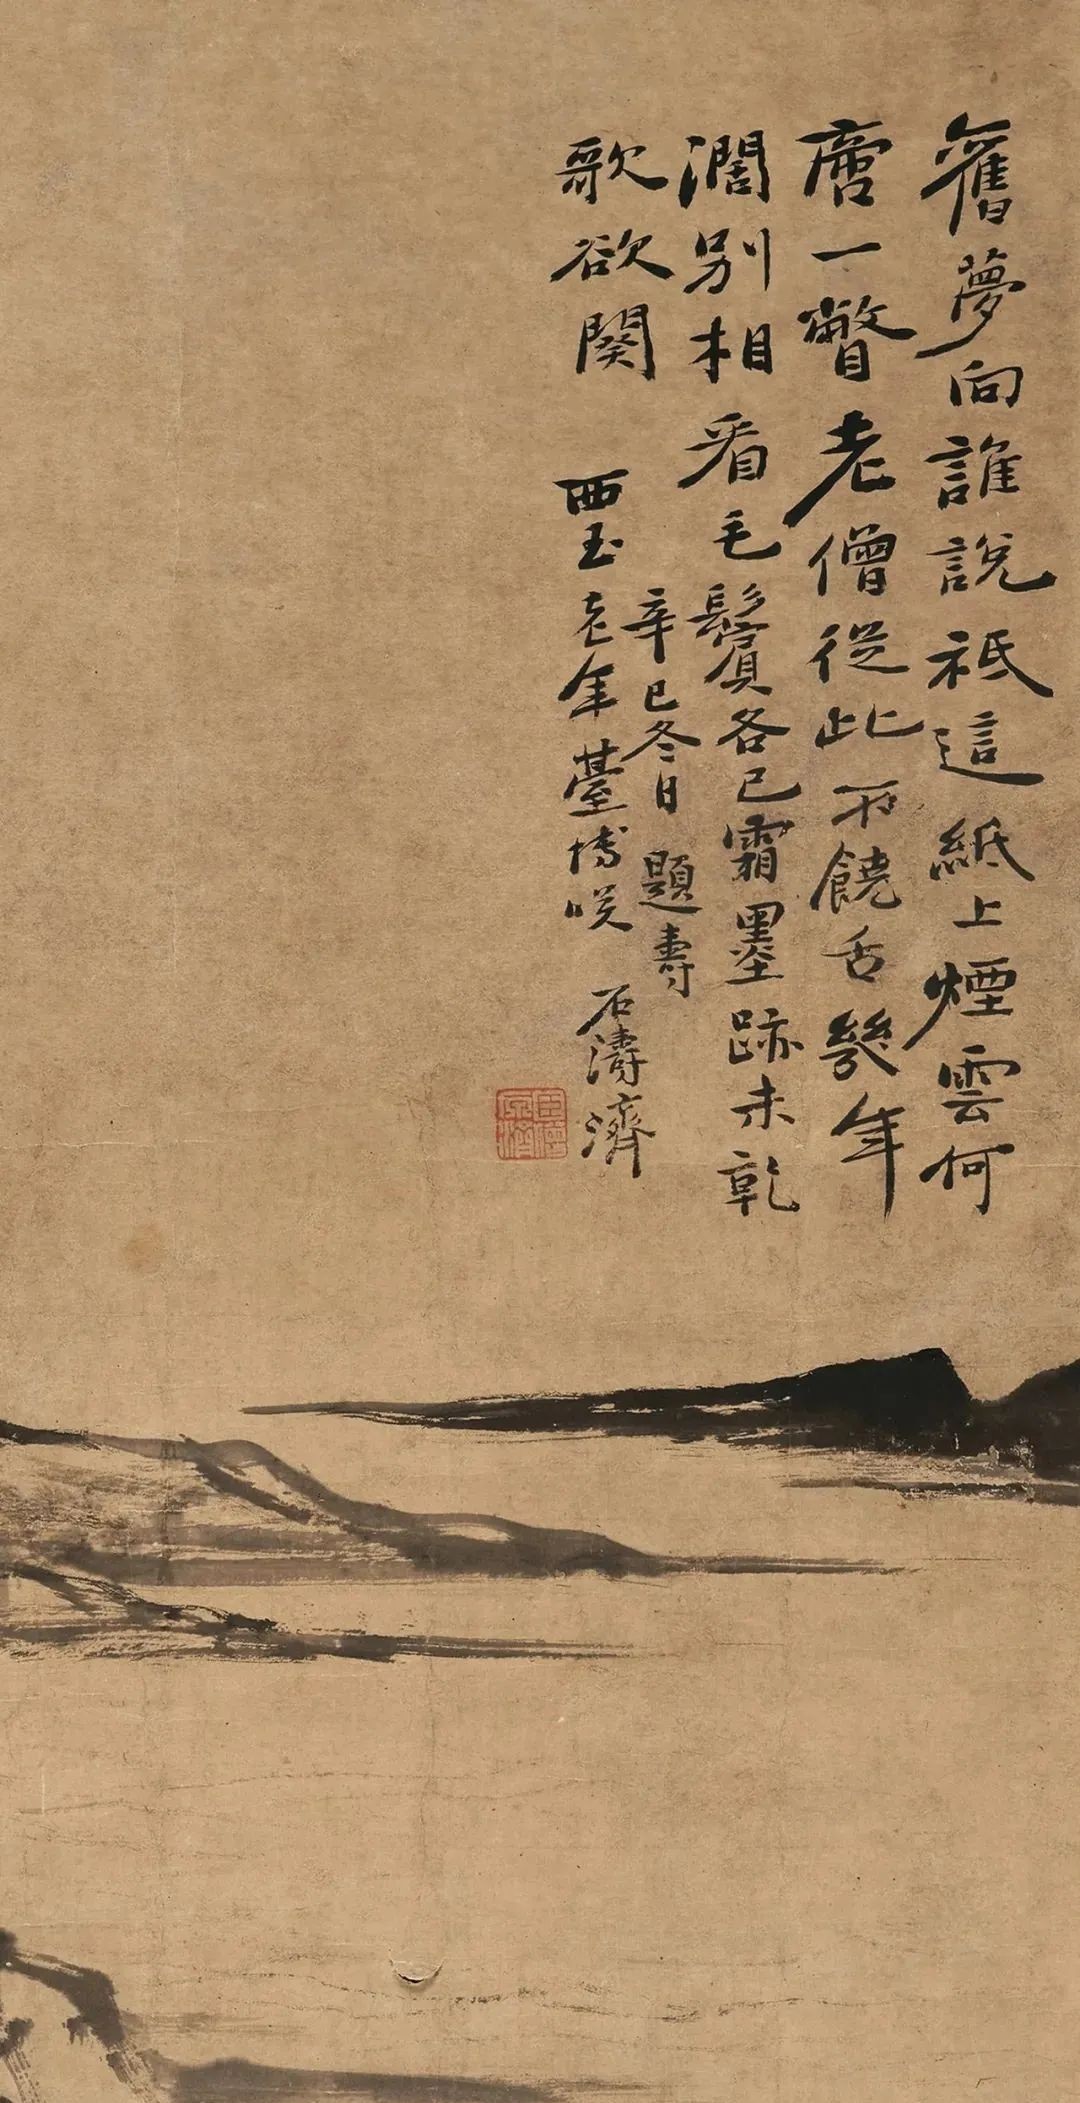 舊夢向誰說祇這紙上煙雲何
啻一瞥老僧從此不饒舌幾年
濶別相看毛鬢各已霜墨跡未乾
歌欲闋
辛巳冬日題壽
西玉老年臺博咲 石濤濟
臣僧元濟